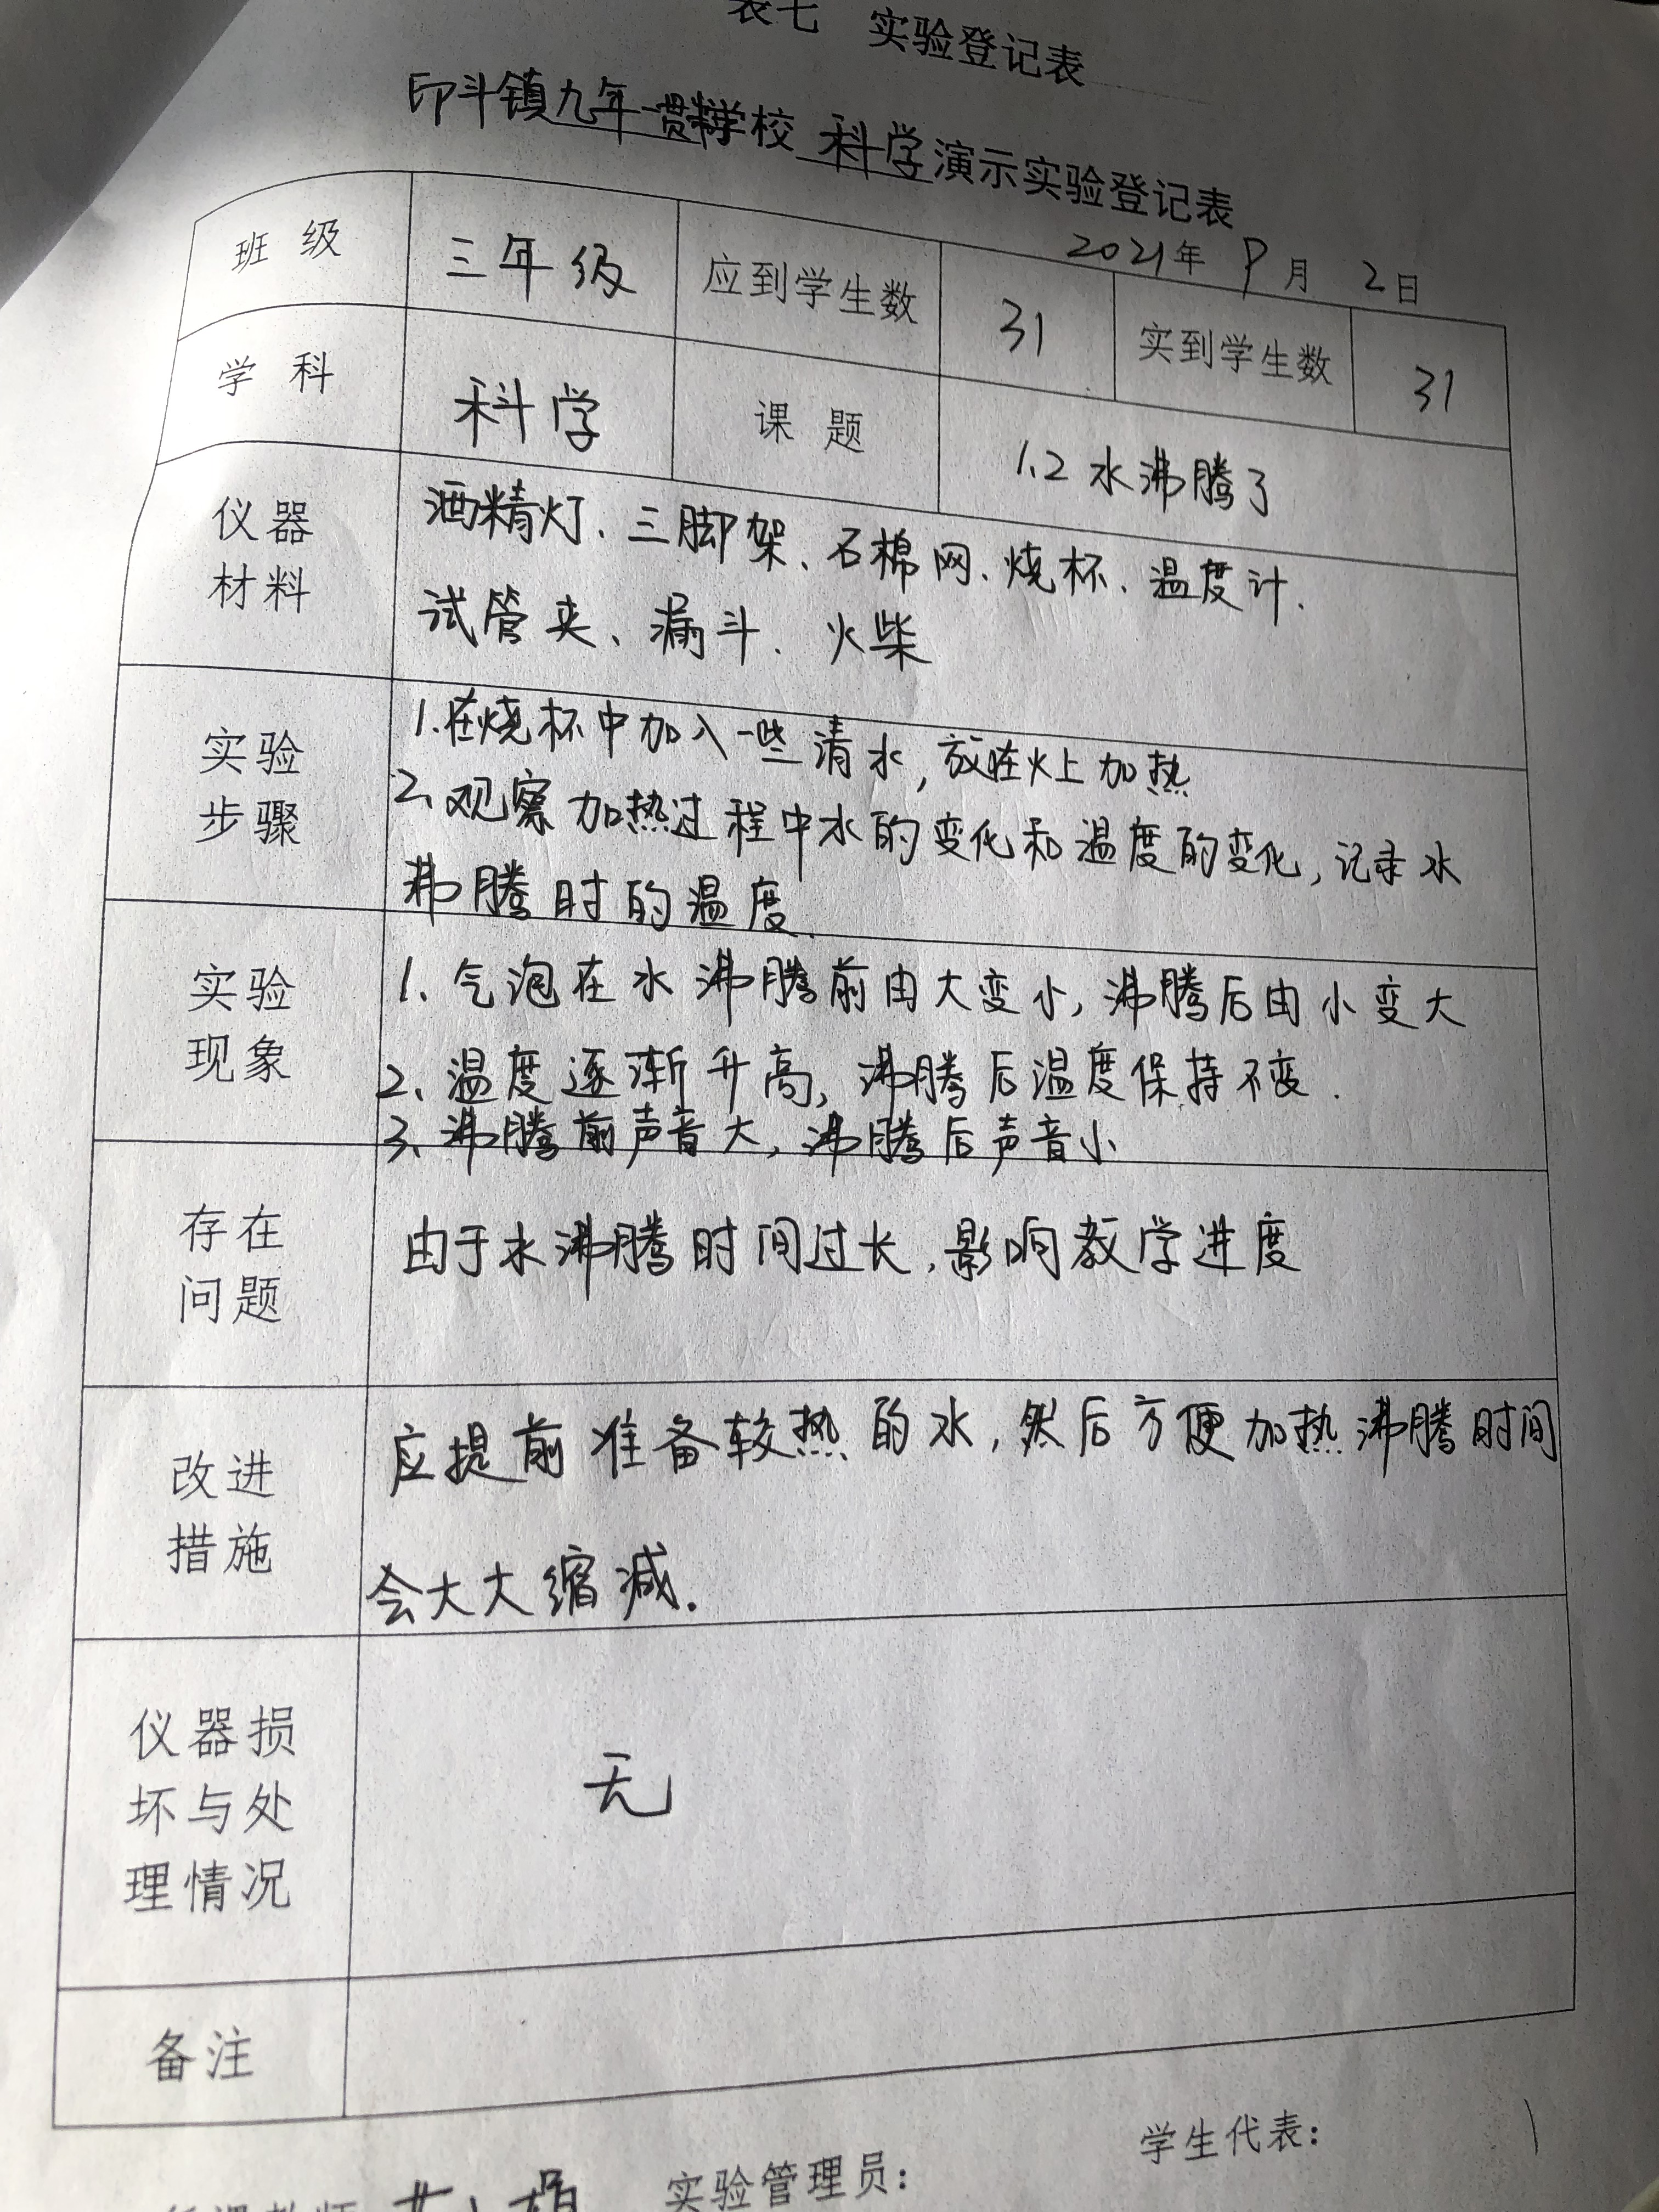 表七 实验登记表
印斗镇九年一贯制学校 科学演示实验登记表
2021年 9月 2日
班级 三年级 应到学生数 31 实到学生数 31
学科 科学 课题 1.2 水沸腾了
仪器
材料
酒精灯、三脚架、石棉网、烧杯、温度计、
试管夹、漏斗、火柴
实验
步骤
1.在烧杯中加入一些清水,放在火上加热
2、观察加热过程中水的变化和温度的变化,记录水
沸腾时的温度.
实验
现象
1、气泡在水沸腾前由大变小,沸腾后由小变大
2、温度逐渐升高,沸腾后温度保持不变.
3、沸腾前声音大,沸腾后声音小
存在
问题
由于水沸腾时间过长,影响教学进度
改进
措施
应提前准备较热的水,然后方便加热沸腾时间
会大大缩减.
仪器损
坏与处
理情况
无
备注
实验管理员:
学生代表: